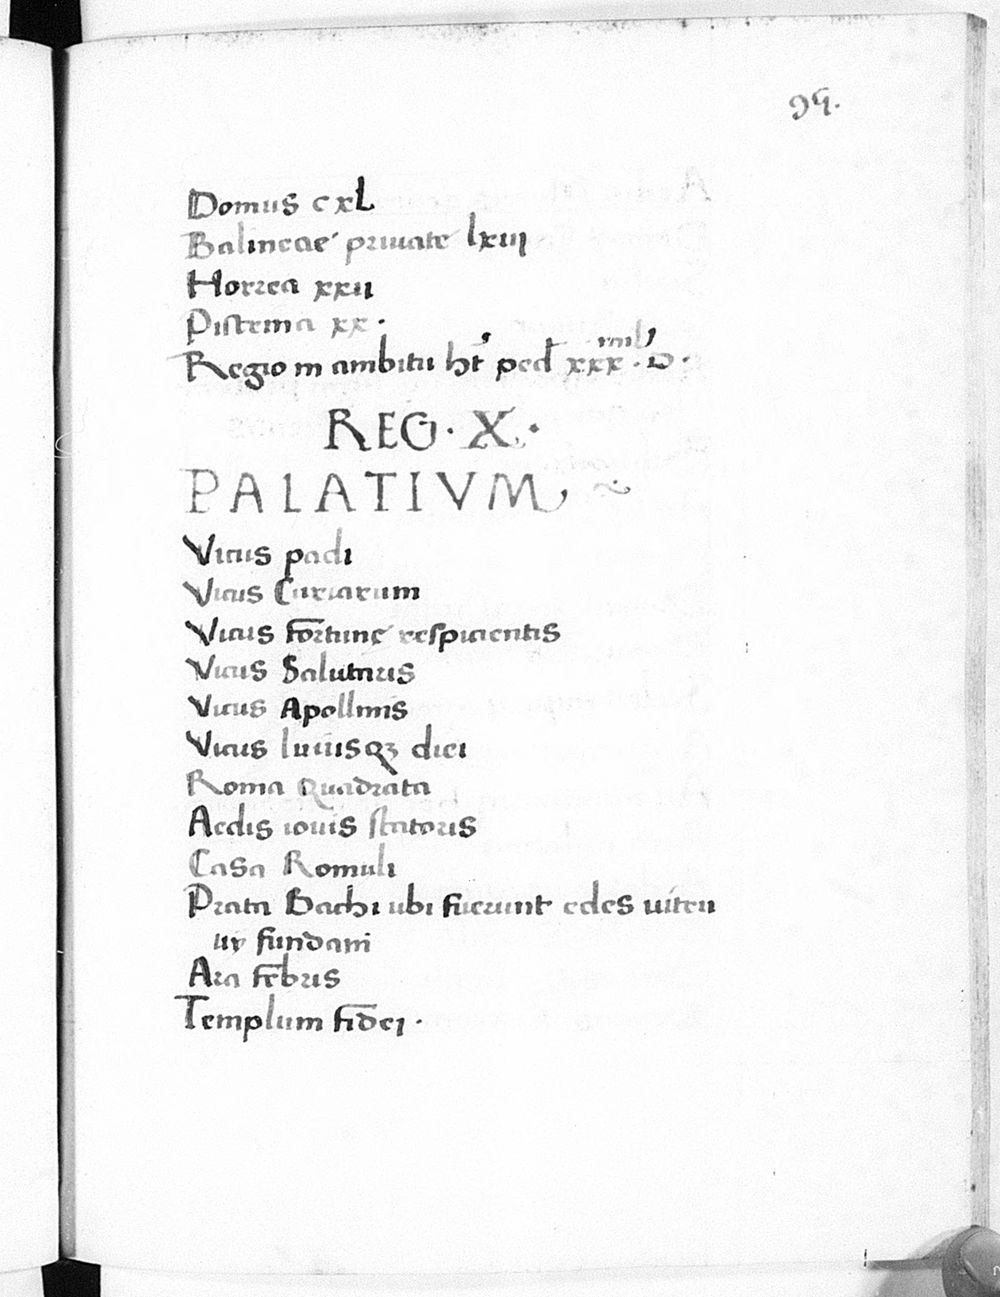 95.
Domus cxL
Balineae priuate lxiii
Horrea xxii
Pistrina xx.
Regio in ambitu ht ped xxx. D.
REG. X.
PALATIVM
Vicus padi
Vicus Curiarum
Vicus fortunę respicientis
Vicus Salutaris
Vicus Apollinis
Vicus huiusq3 diei
Roma Quadrata
Aedis iouis statoris
Casa Romuli
Prata Bachi ubi fuerunt edes uiteu
uy fundani
Ara febris
Templum fidei.